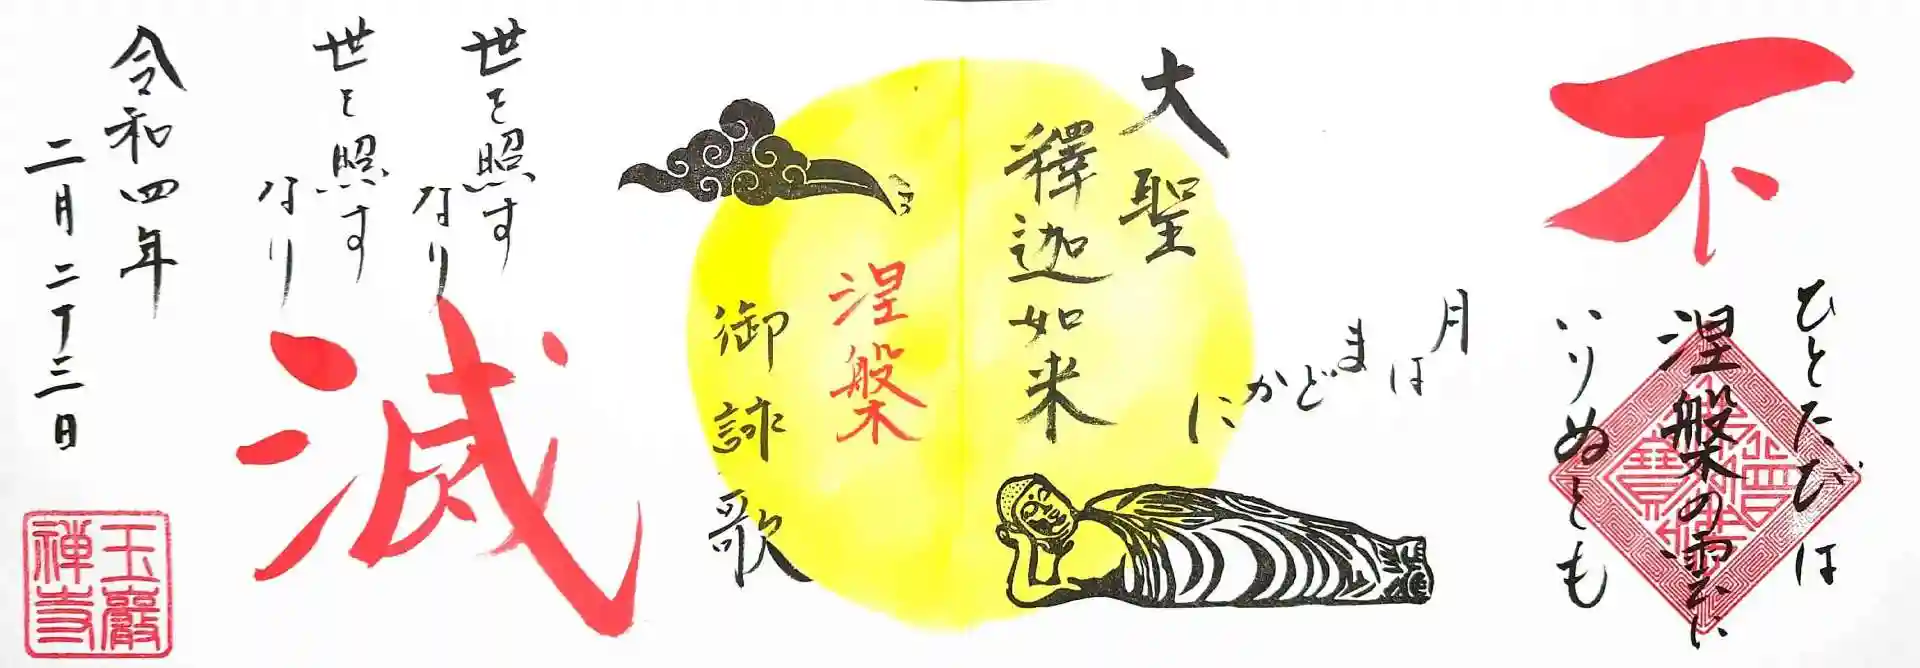 不
ひとたびは
涅槃の雲に
いりぬとも
月はまどかに
大聖
釋迦如来
涅槃
御詠歌
世を照す
なり
世を照す
なり
滅
令和四年
二月二十三日
玉巖
禅寺